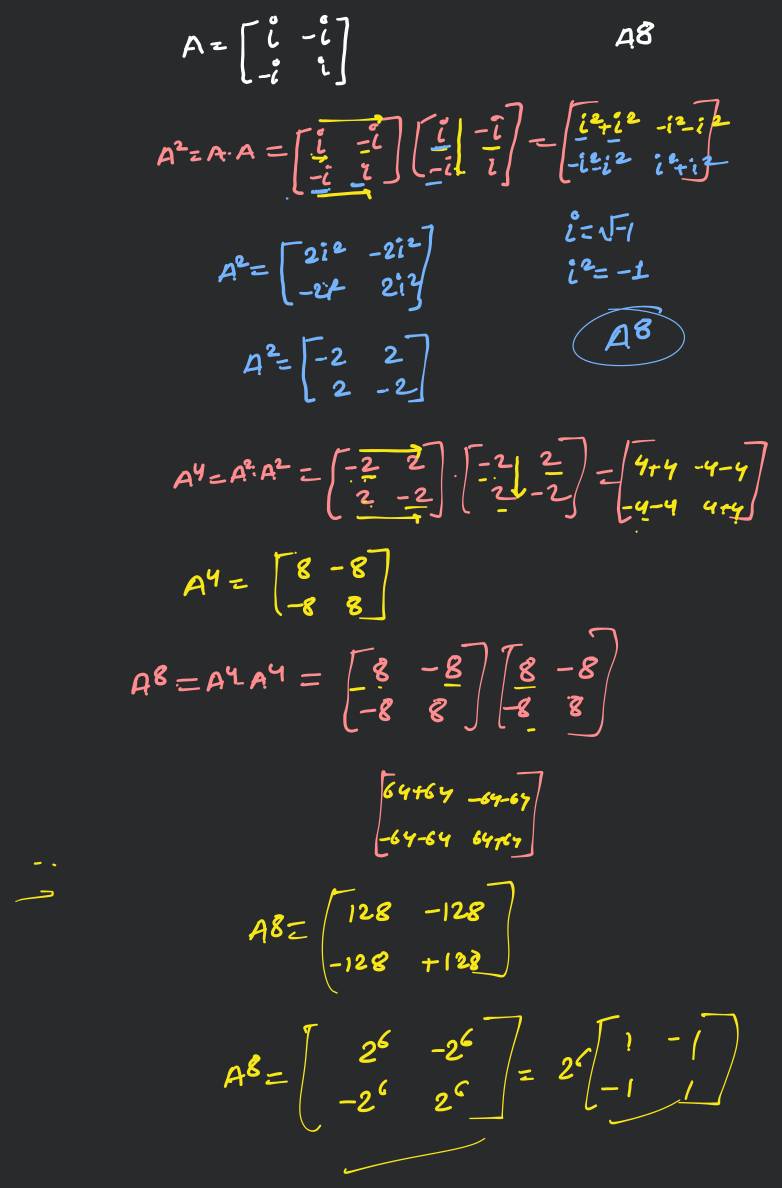 A = [i -i] A8
[-i i]
A² = A·A = [i -i] [i -i] = [i²+i² -i²-i²]
[-i i] [-i i] [-i²-i² i²+i²]
i = √-1
A² = [2i² -2i²] i² = -1
[-2i² 2i²]
A8
A² = [-2 2]
[2 -2]
A⁴ = A²·A² = [-2 2] · [-2 2] = [4+4 -4-4]
[2 -2] [2 -2] [-4-4 4+4]
A⁴ = [8 -8]
[-8 8]
A8 = A⁴ A⁴ = [8 -8] [8 -8]
[-8 8] [-8 8]
[64+64 -64-64]
[-64-64 64+64]
A8 = [128 -128]
[-128 +128]
A8 = [2⁶ -2⁶] = 2⁶ [1 -1]
[-2⁶ 2⁶] [-1 1]